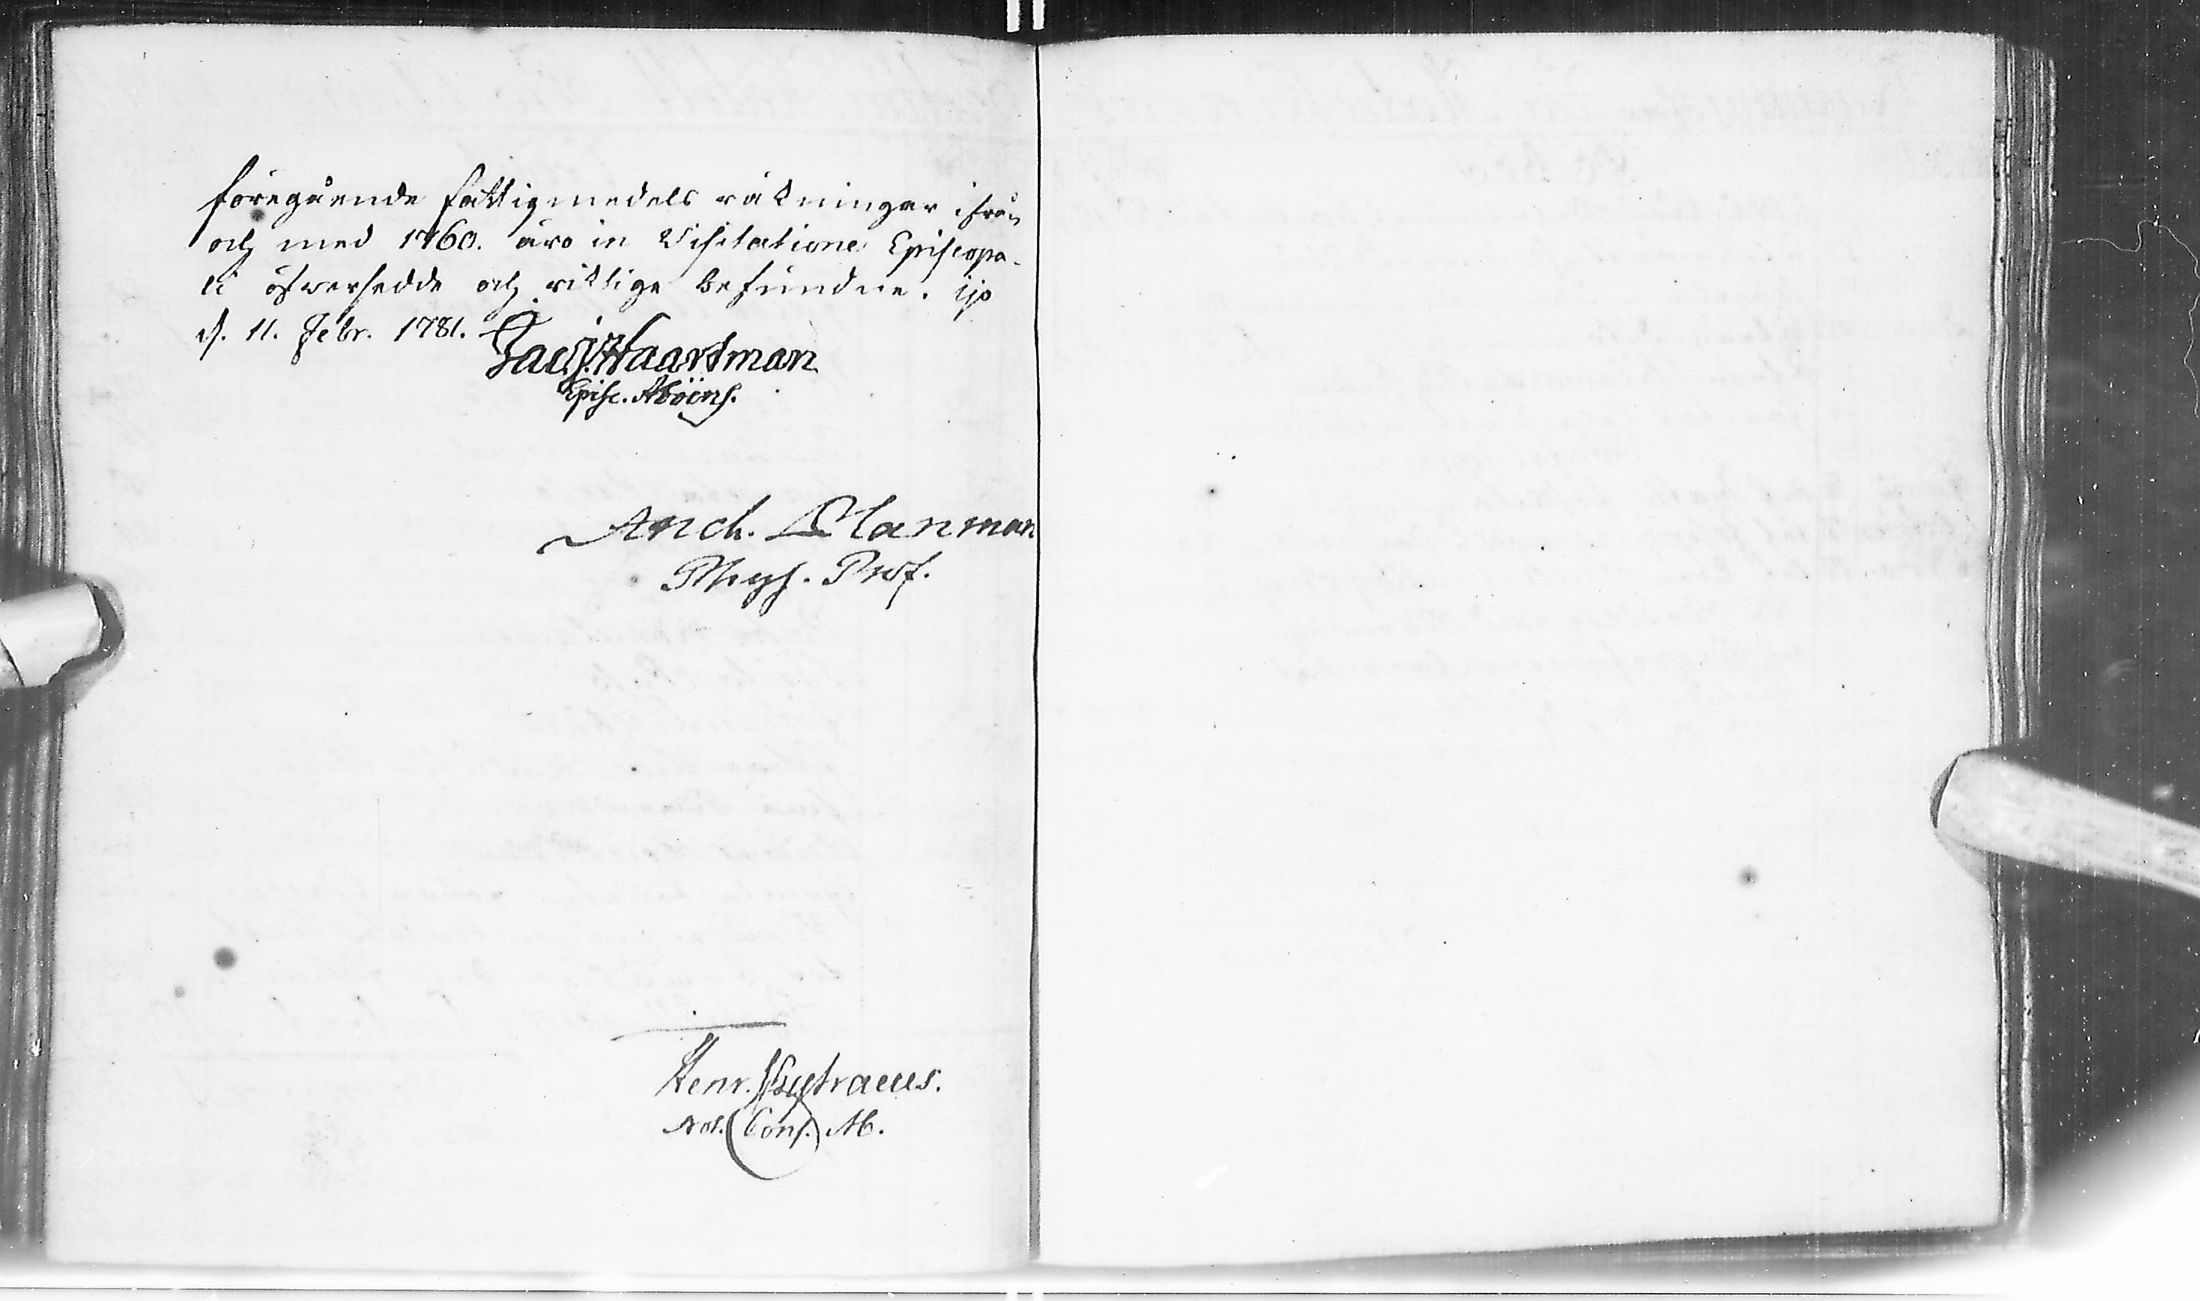 föregående fattigmedels räkningar ifrån
och med 1760. äro in Visitatione Episcopa-
li öfversedde och riktige befundne. Ijo
d. 11. Febr. 1781.
Jac. Haartman
Episc. Aboëns.
And. Planman
Phys. Prof.
Henr. Chytraeus.
Not. Cons. Ab.